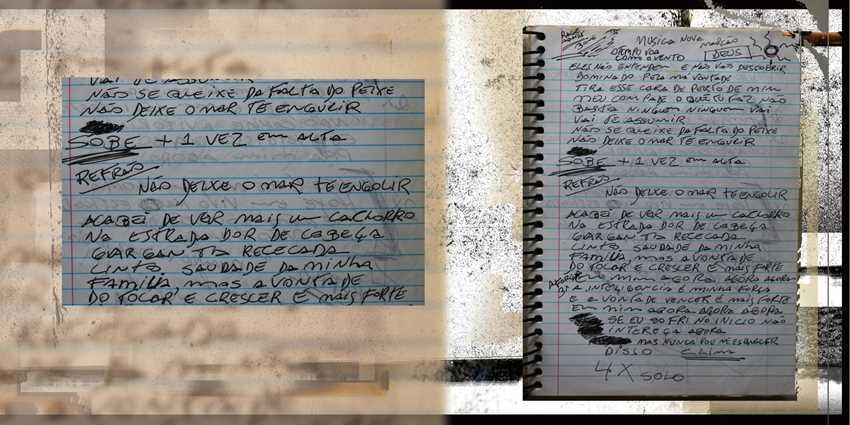 VAI TE ASSUMIR
NÃO SE QUEIXE DA FALTA DO PEIXE
NÃO DEIXE O MAR TE ENGULIR
SOBE + 1 VEZ em ALTA
REFRÃO
NÃO DEIXE O MAR TE ENGOLIR
ACABEI DE VER MAIS UM CACHORRO
NA ESTRADA DOR DE CABEÇA
GARGANTA RECECADA
SINTO SAUDADE DA MINHA
FAMILIA, MAS A VONTADE
DO TOCAR E CRESCER É MAIS FORTE
MUSICA NOVA
O TEMPO VOA
COMO O VENTO
DEUS
ELES NÃO ENTENDEM E NÃO VÃO DESCOBRIR
DOMINADO PELA MA VONTADE
TIRA ESSE CARA DE PERTO DE MIM
MEU COMPADE O QUE TU FAZ NÃO
BASTA NINGUEM NINGUEM VAI
VAI TE ASSUMIR
NÃO SE QUEIXE DA FALTA DO PEIXE
NÃO DEIXE O MAR TE ENGULIR
SOBE + 1 VEZ em ALTA
REFRÃO
NÃO DEIXE O MAR TE ENGOLIR
ACABEI DE VER MAIS UM CACHORRO
NA ESTRADA DOR DE CABEÇA
GARGANTA RECECADA
SINTO SAUDADE DA MINHA
FAMILIA, MAS A VONTADE
DO TOCAR E CRESCER É MAIS FORTE
EM MIM AGORA AGORA AGORA
A INTELIGENCIA É MINHA FORÇA
E A VONTADE DE VENCER É MAIS FORTE
EM MIM AGORA AGORA AGORA
SE EU SOFRI NO INICIO NÃO
INTEREÇA AGORA
MAS NUNCA VOU ME ESQUECER
DISSO
4X SOLO